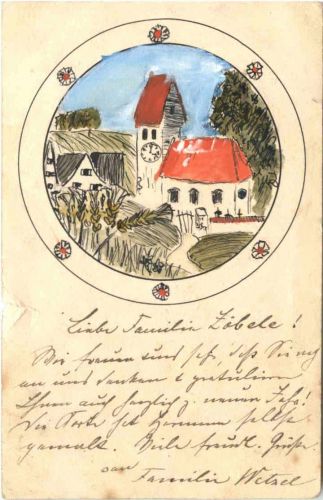 Liebe Familie Zöbele!
Wir freuen uns sehr, daß Sie auch
an uns denken & gratulieren
Ihnen auch herzlich z. neuen Jahr!
Die Karte hat Hermann selbst
gemalt. Viele freundl. Grüße
von Familie Wetzel